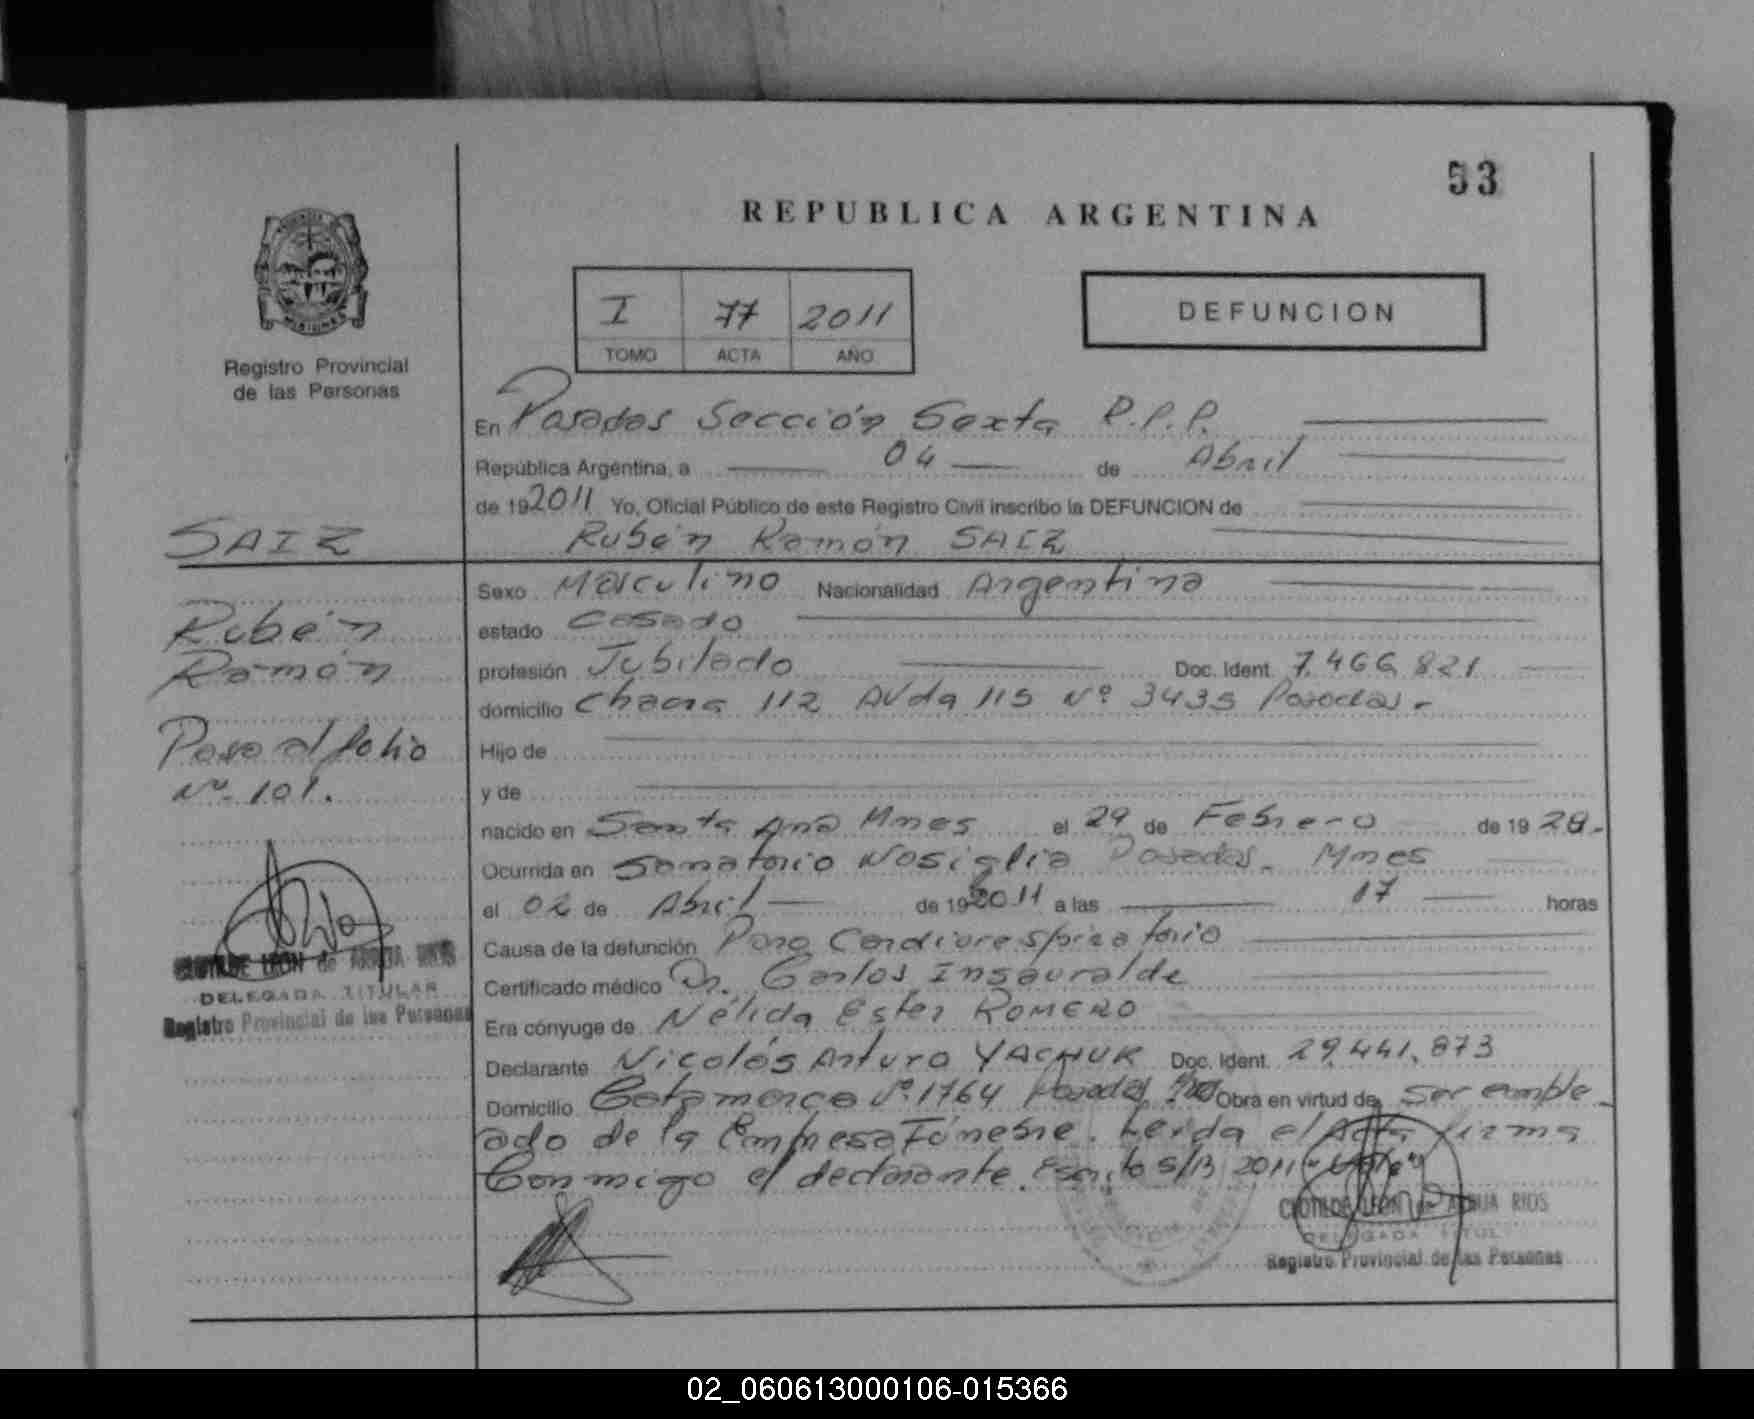 53
REPUBLICA ARGENTINA
I 77 2011
TOMO ACTA AÑO
DEFUNCION
Registro Provincial
de las Personas
En Posadas Sección Sexta R.P.P.
República Argentina, a 04 de Abril
de 192011 Yo, Oficial Público de este Registro Civil inscribo la DEFUNCION de
Rubén Ramón SAIZ
SAIZ
Rubén
Ramón
Pasa al folio
Nº 101.
CLOTILDE LEON de AGUA RIOS
DELEGADA TITULAR
Registro Provincial de las Personas
Sexo Masculino Nacionalidad Argentina
estado Casado
profesión Jubilado Doc. Ident. 7.466.821
domicilio Chacra 112 AVda 115 Nº 3435 Posadas.-
Hijo de
y de
nacido en Santa Ana Mnes el 29 de Febrero de 19 28.-
Ocurrida en Sanatorio Nosiglia Posadas - Mnes
el 02 de Abril de 192011 a las 17 horas
Causa de la defunción Paro Cardiorespiratorio
Certificado médico Dr. Carlos Insauralde
Era cónyuge de Nélida Ester ROMERO
Declarante Nicolás Arturo YACHUK Doc. Ident. 29.441.873
Domicilio Catamarca Nº 1764 Posadas Obra en virtud de ser emple
ado de la Empresa Fúnebre. Leída el Acta firma
Conmigo el declarante. Escrito S/B 2011 "Vale"
CLOTILDE LEON de AGUA RIOS
DELEGADA TITUL
Registro Provincial de las Personas
02_060613000106-015366